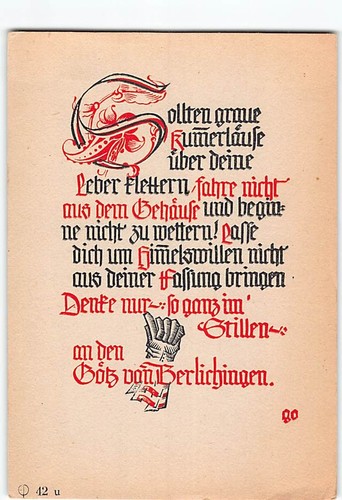 Sollten graue
Kum̄erläuse
über deine
Leber klettern, fahre nicht
aus dem Gehäuse und begin-
ne nicht zu wettern! Lasse
dich um Him̄elswillen nicht
aus deiner Fassung bringen
Denke nur - so ganz im
Stillen -
an den
Götz von Berlichingen.
go
42 u